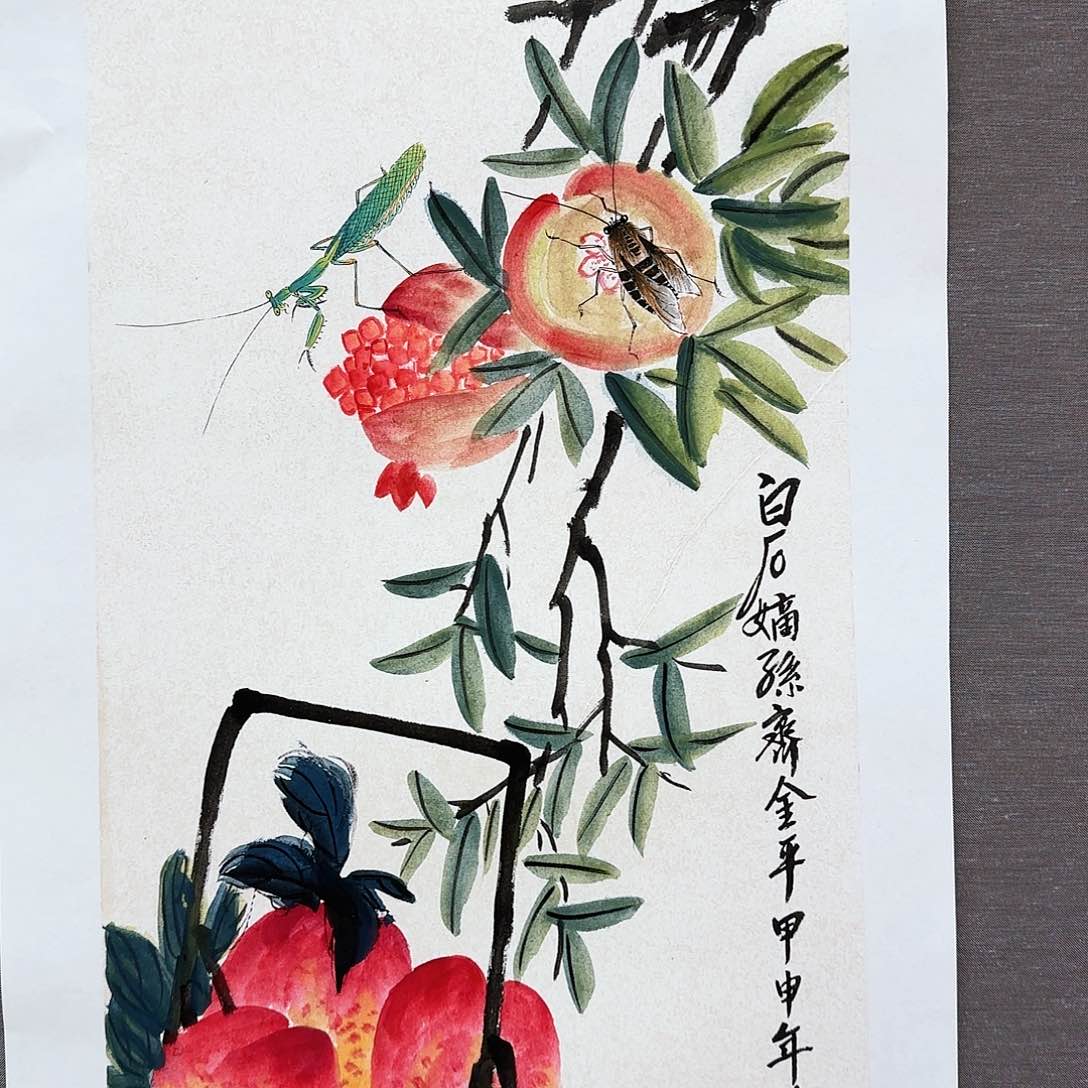 白石嫡孫齊金平甲申年